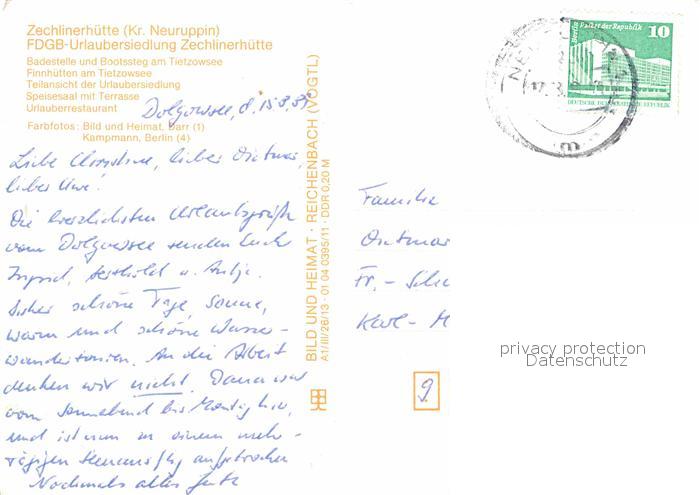 Zechlinerhütte (Kr. Neuruppin)
FDGB-Urlaubersiedlung Zechlinerhütte
Badestelle und Bootssteg am Tietzowsee
Finnhütten am Tietzowsee
Teilansicht der Urlaubersiedlung
Speisesaal mit Terrasse
Urlauberrestaurant
Farbfotos: Bild und Heimat, Darr (1)
Kampmann, Berlin (4)
Dolgowsee, d. 15.8.
Liebe lieber Dietmar,
lieber Uwe!
Die herzlichsten Urlaubsgrüße
vom Dolgowsee senden Euch
Ingrid, u. Antje.
Bisher schöne Tage, Sonne,
warm und schöne Wasser-
wandertouren. An die Arbeit
denken wir nicht. war
vom Sonnabend bis Montag hier,
und ist nun zu einem mehr-
tägigen aufgebrochen
Nochmals alles Gute
BILD UND HEIMAT · REICHENBACH (VOGTL)
A1/III/26/13 · 01 04 0395/11 · DDR 0,20 M
Berlin, Palast der Republik
10
DEUTSCHE DEMOKRATISCHE REPUBLIK
m
Familie
Dietmar
Fr.-
Karl-M
9
privacy protection
Datenschutz